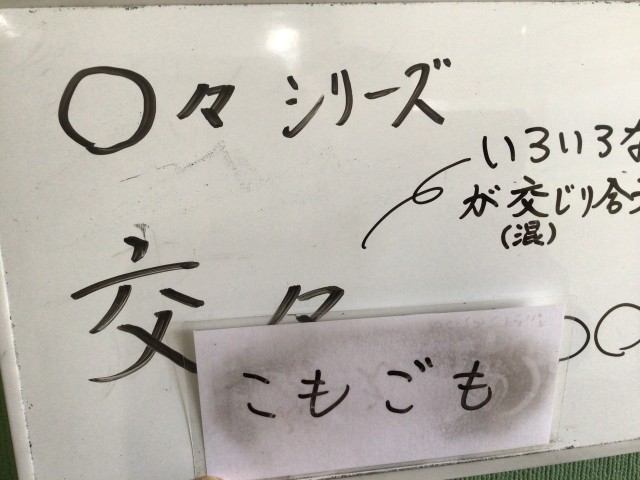 〇々シリーズ
いろいろな
が交じり合う
(混)
交々
こもごも
〇〇